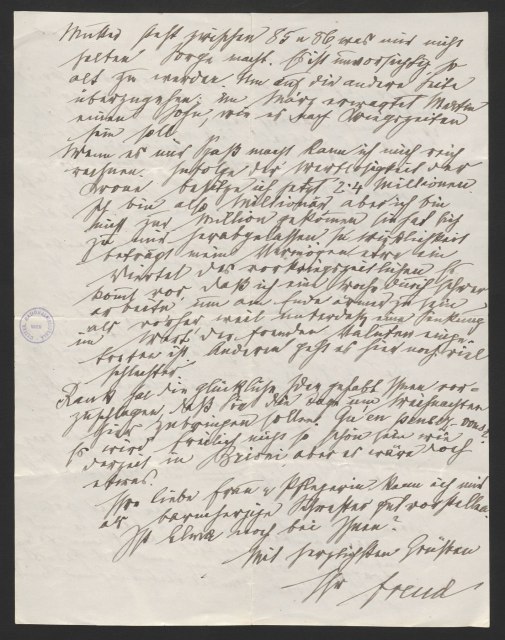 Mutter steht zwischen 85 u 86, was mir nicht
selten Sorge macht. Es ist unvorsichtig so
alt zu werden. Um auf die andere Seite
überzugehen, im März erwartet Martin
einen Sohn, wie es nach Kriegszeiten
sein soll.
Wenn es mir Spaß macht kann ich mich reich
rechnen. Infolge der Wertlosigkeit der
Krone besitze ich jetzt 2·4 Millionen
Ich bin also Millionär aber ich bin
nicht zur Million gekommen sie hat sich
zu mir herabgelassen. In Wirklichkeit
beträgt mein Vermögen etwa ein
Viertel des vorkriegszeitlichen. Es
kommt vor daß ich eine Woche durch schwer
arbeite um am Ende ärmer zu sein
als vorher weil unterdeß eine Senkung
im Wert der fremden Valuten einge-
treten ist. Anderen geht es hier noch viel
schlechter.
Rank hat die glückliche Idee gehabt Ihnen vor-
zuschlagen, daß Sie die Tage um Weihnachten
hier zubringen sollen.
Es wird freilich nicht so schön sein wie
derzeit in Brioni aber es wäre doch
etwas.
Ihre liebe Frau Pflegerin kann ich mir
als barmherzige Schwester gut vorstellen.
Ist Elma noch bei Ihnen?
Mit herzlichsten Grüßen
Ihr Freud